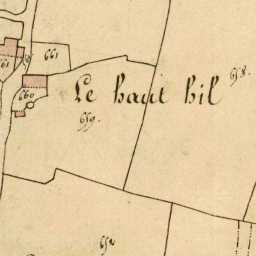 661
661
658.
Le haut bil
660
659.